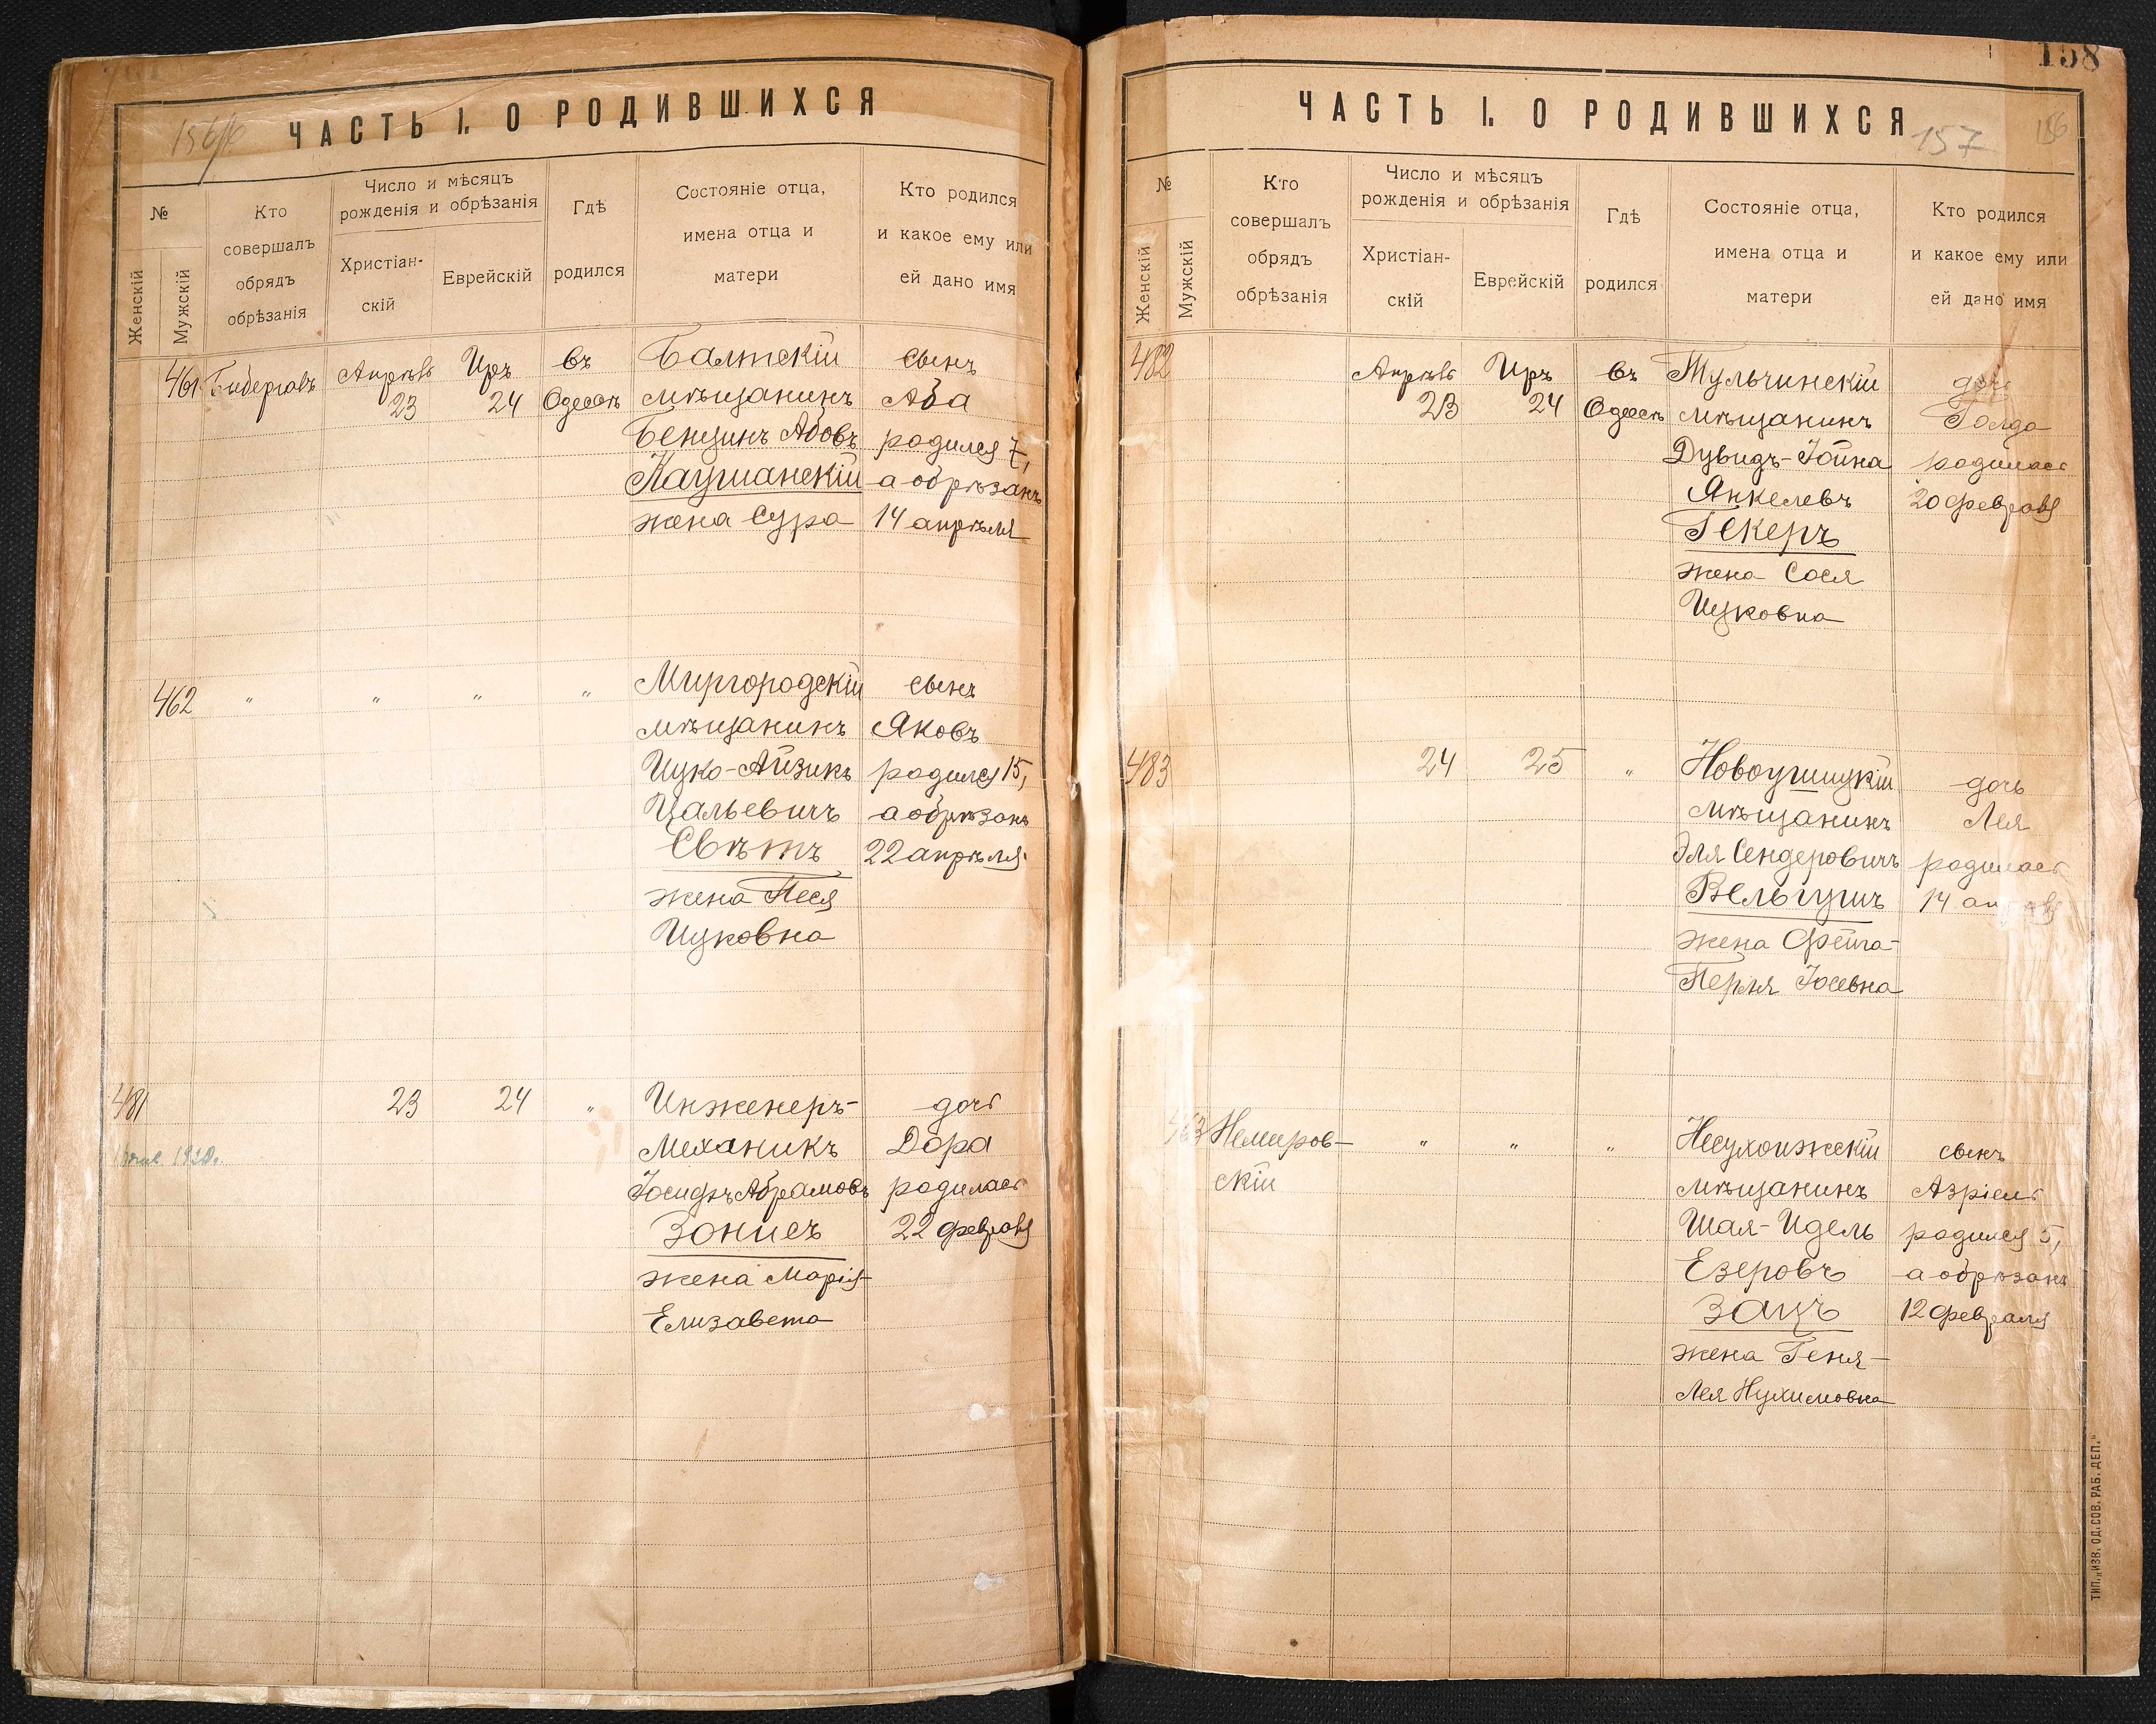 ЧАСТЬ I. О РОДИВШИХСЯ
№
Женскій
Мужскій
Кто
совершалъ
обрядъ
обрѣзанія
Число и мѣсяцъ
рожденія и обрѣзанія
Христіан-
скій
Еврейскій
Гдѣ
родился
Состояніе отца,
имена отца и
матери
Кто родился
и какое ему или
ей дано имя
461
Апрѣль
23
Иръ
24
въ
Одессѣ
Балтскій
мѣщанинъ
Бенцинъ Абовъ
Каушанскій
жена Сура
сынъ
Аба
родился 7,
а обрѣзанъ
14 апрѣля
462 " " " "
Миргородскій
мѣщанинъ
Ицко-Айзикъ
Цальевичъ
Свѣтъ
жена Песя
Ицковна
сынъ
Яковъ
родился 15,
а обрѣзанъ
22 апрѣля
481
23 24 "
Инженеръ-
Механикъ
Іосифъ Абрамовъ
Зонисъ
жена Марія-
Елизавета
дочь
Дора
родилась
22 февраля
158
ЧАСТЬ I. О РОДИВШИХСЯ
157
№
Женскій
Мужскій
Кто
совершалъ
обрядъ
обрѣзанія
Число и мѣсяцъ
рожденія и обрѣзанія
Христіан-
скій
Еврейскій
Гдѣ
родился
Состояніе отца,
имена отца и
матери
Кто родился
и какое ему или
ей дано имя
482
Апрѣль
23
Иръ
24
въ
Одессѣ
Тульчинскій
мѣщанинъ
Дувидъ-Іойна
Янкелевъ
Гекеръ
жена Сося
Ицковна
дочь
Голда
родилась
20 февраля
483
24 25 "
Новоушицкій
мѣщанинъ
Эля Сендеровичъ
Вельгушъ
жена Фейга-
Перля Іосевна
дочь
Лея
родилась
14
463
Немиров-
скій
" " "
Несухоижскій
мѣщанинъ
Шая-Идель
Езеровъ
Зацъ
жена Геня-
Лея Нухимовна
сынъ
Азріель
родился 5,
а обрѣзанъ
12 февраля
ТИП. „ИЗВ. ОД. СОВ. РАБ. ДЕП."